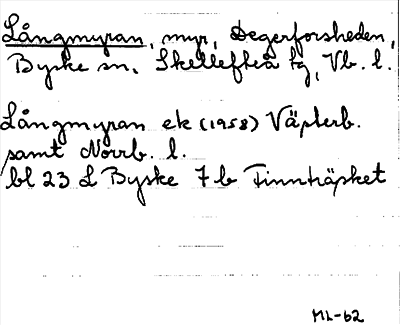 Långmyran, myr, Degerforsheden,
Byske sn, Skellefteå tg, Vb. l.
Långmyran ek (1958) Västerb.
samt Norrb. l.
bl 23 L Byske 7 b Finnträsket
ML-62